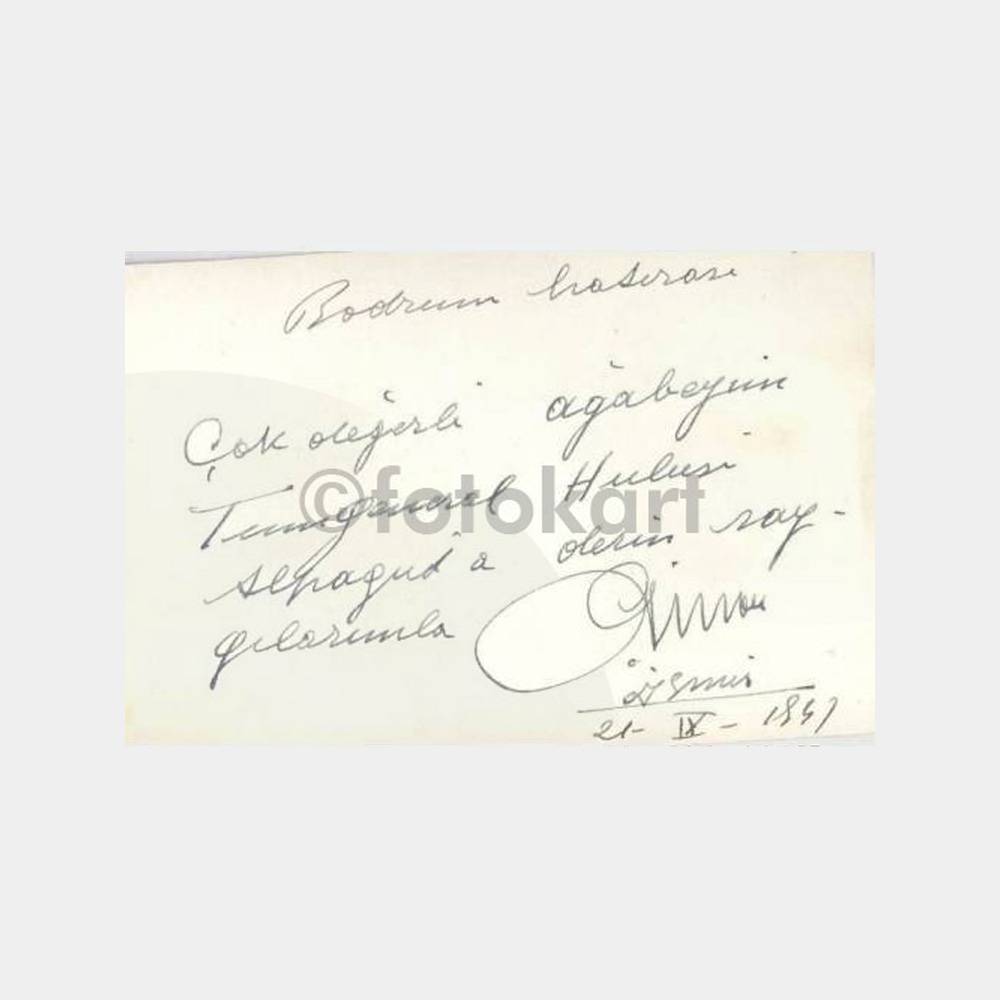 Bodrum hatırası
Çok değerli ağabeyim
Tümgeneral Hulusi
©fotokart
Alpagut'a derin say-
gılarımla
İzmir
21- IX - 1947